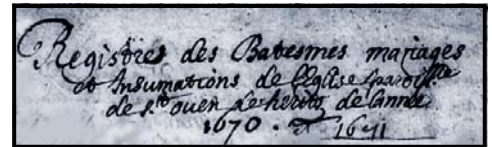 Registres des Batesmes mariages
et Insumations de l'Eglise paroisse
de st ouen de herits de Lannee
1670. et 1671